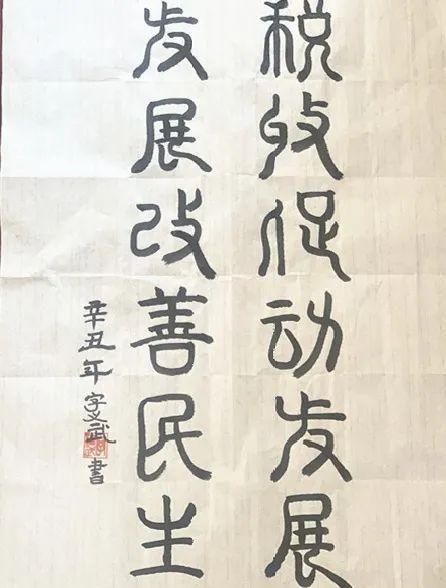 税收促动发展
发展改善民生
辛丑年武書